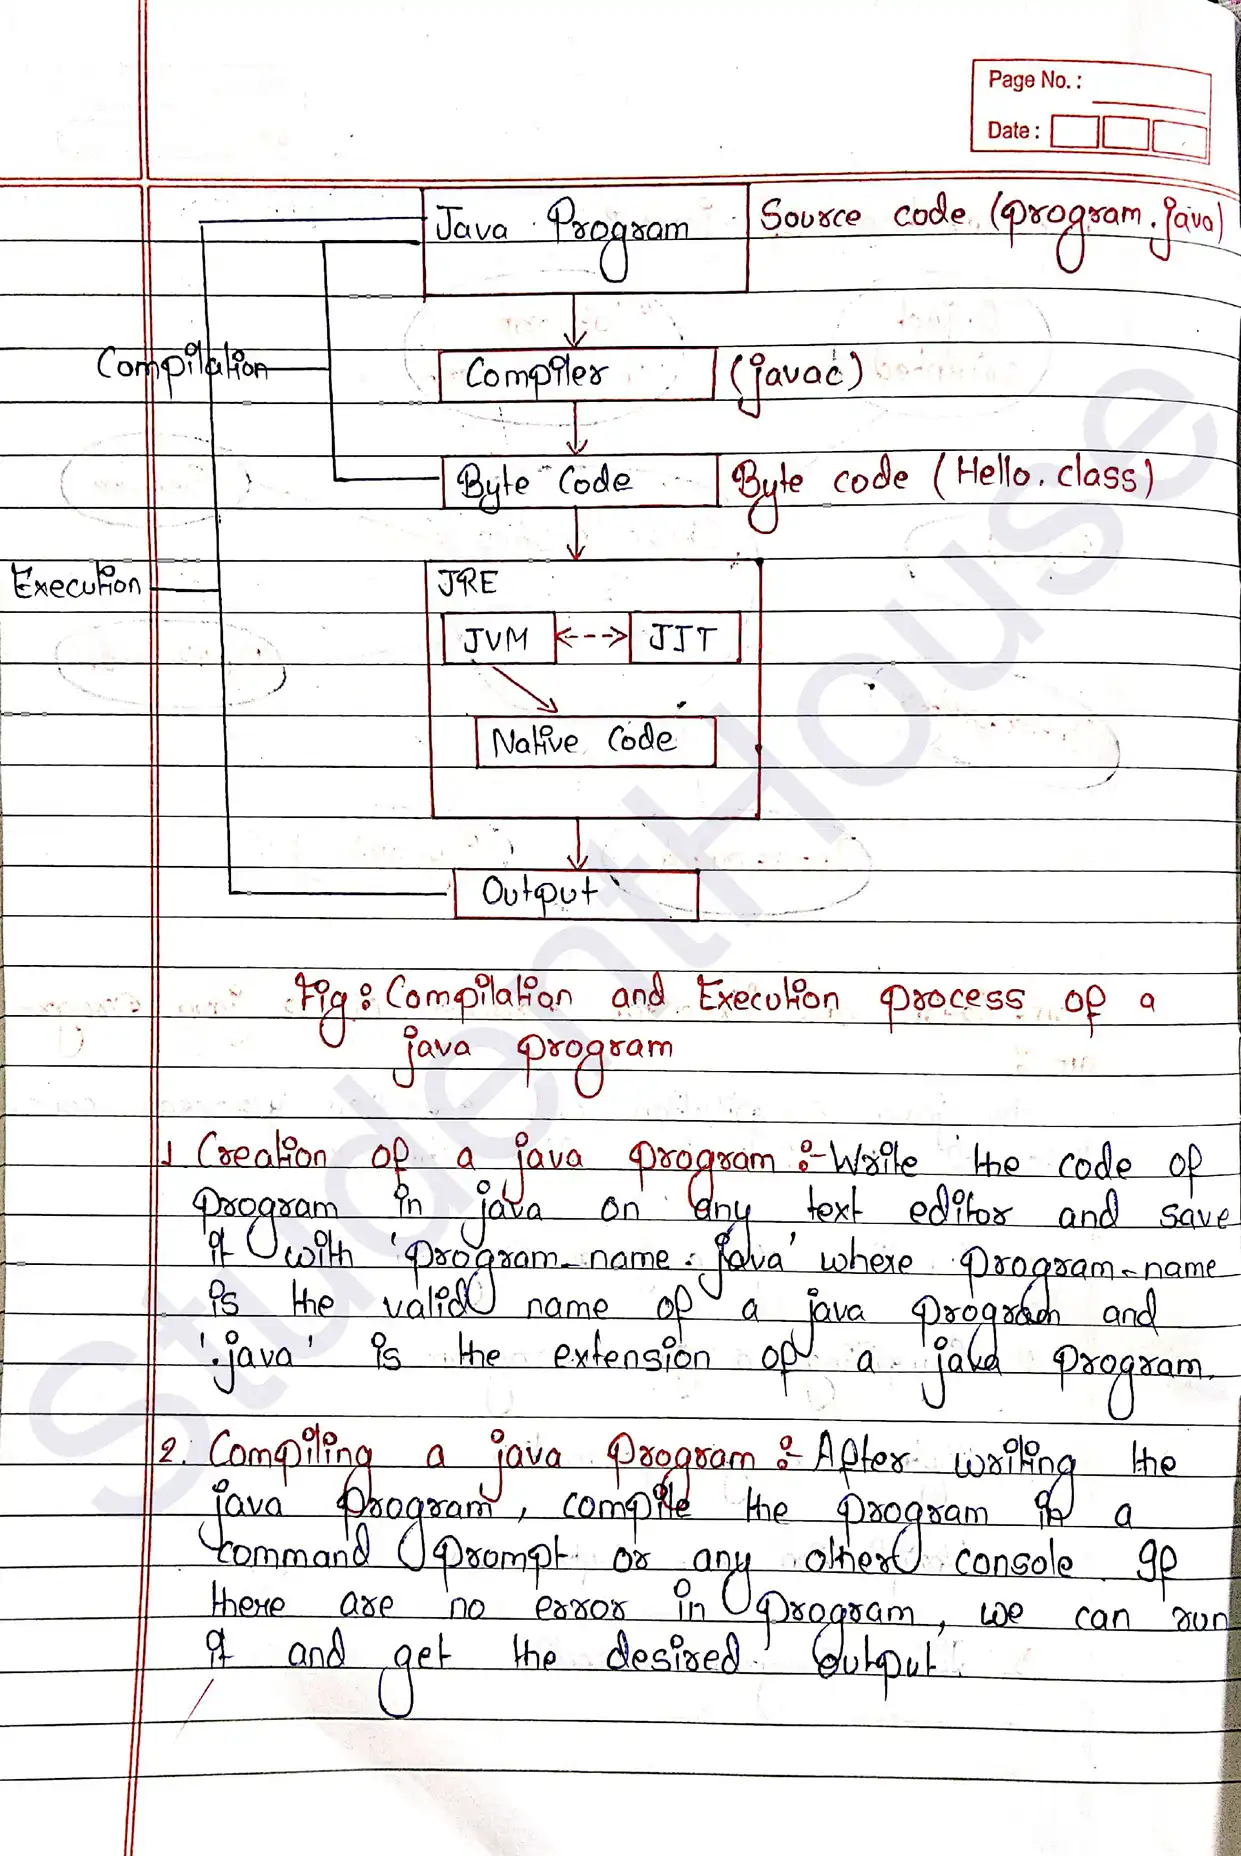 Page No. :
Date :
Java Program
Source code (program.java)
Compilation
Compiler
(javac)
Byte Code
Byte code (Hello.class)
Execution
JRE
JVM
JIT
Native Code
Output
Fig : Compilation and Execution process of a
java program
1 Creation of a java program :- Write the code of
program in java on any text editor and save
it with 'program-name.java' where program-name
is the valid name of a java program and
'.java' is the extension of a java program.
2. Compiling a java program :- After writing the
java program, compile the program in a
command prompt or any other console. If
there are no error in program, we can run
it and get the desired output.
StudentHouse